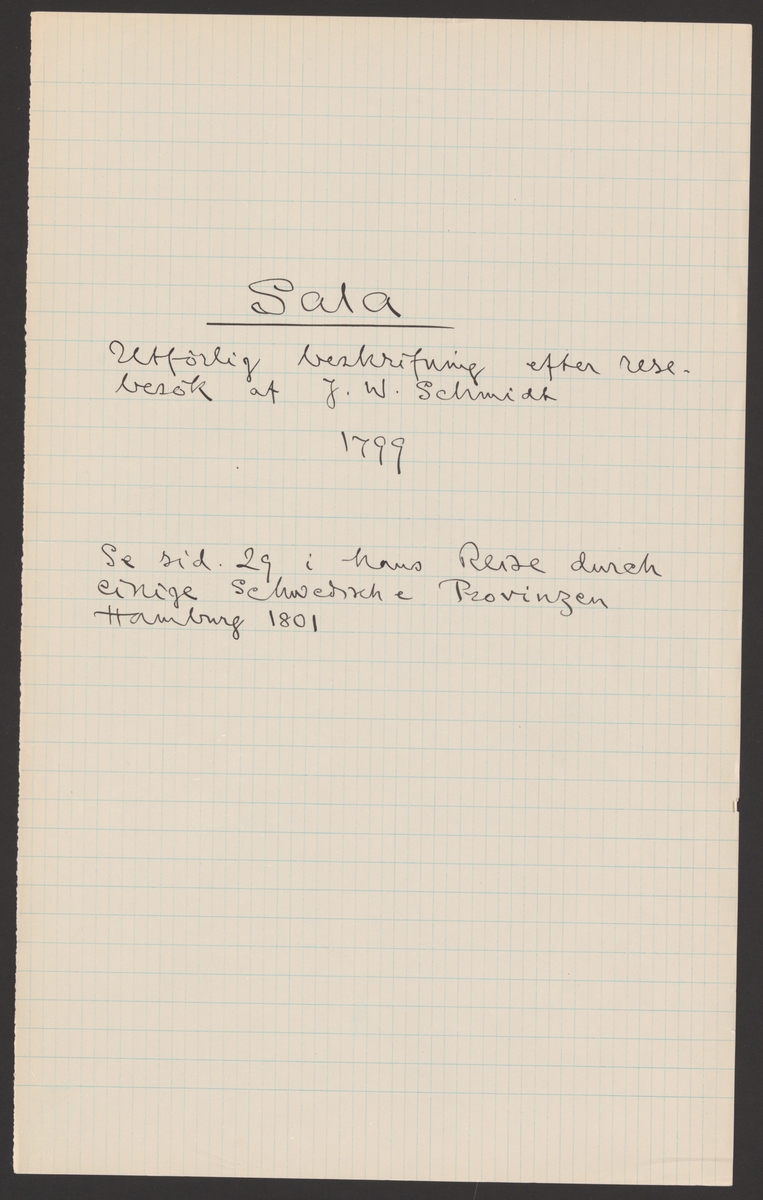 Sala
Utförlig beskrifning efter rese-
besök af J. W. Schmidt
1799
Se sid. 29 i hans Reise durch
einige Schwedische Provinzen
Hamburg 1801